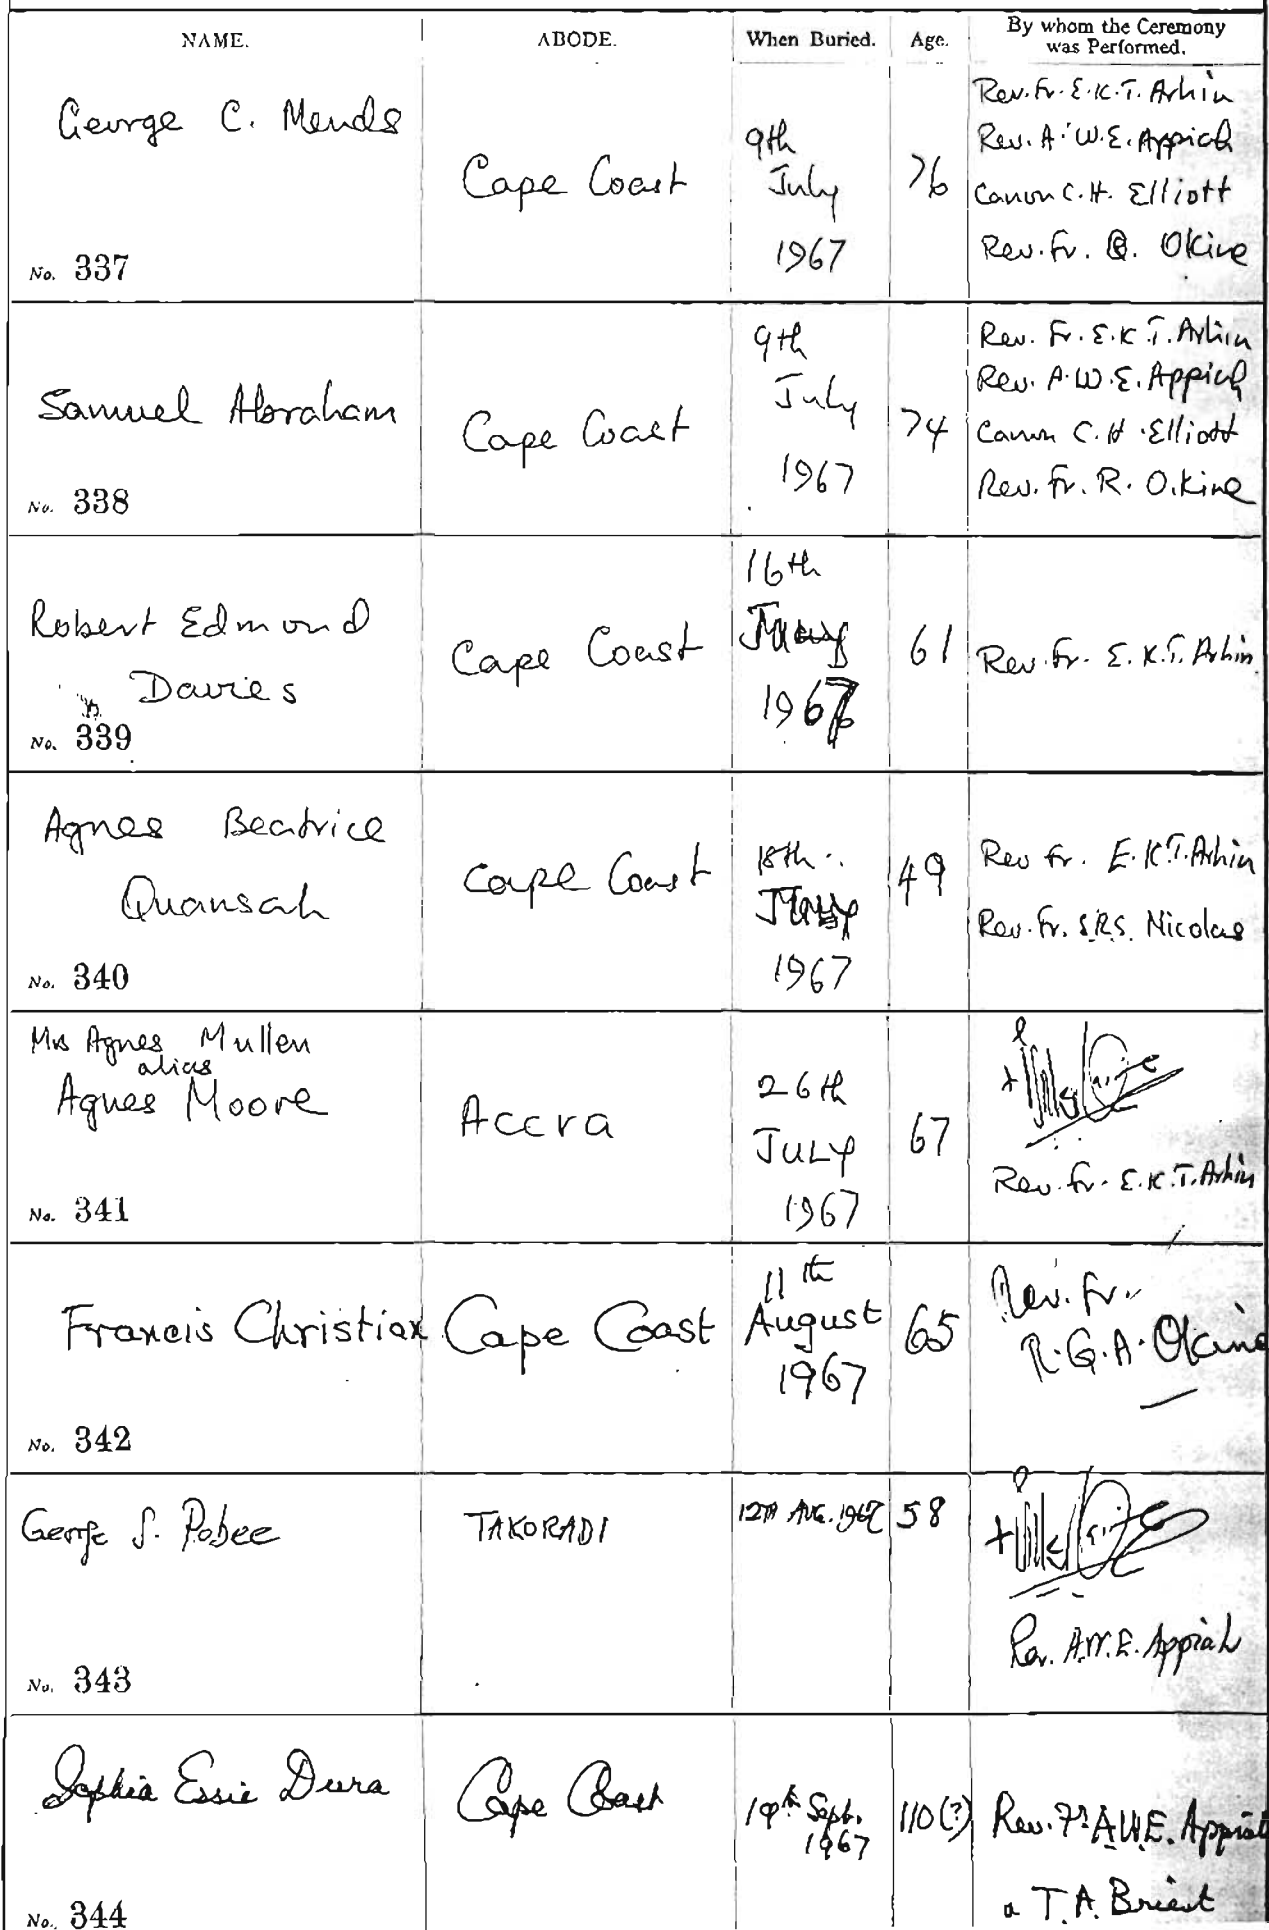 NAME. ABODE. When Buried. Age. By whom the Ceremony was Performed.
George C. Mends
Cape Coast
9th
July
1967
76
Rev. Fr. E.K.T. Arhin
Rev. A.W.E. Appiah
Canon C.H. Elliott
Rev. Fr. R. Okine
No. 337
Samuel Abraham
Cape Coast
9th
July
1967
74
Rev. Fr. E.K.T. Arhin
Rev. A.W.E. Appiah
Canon C.H. Elliott
Rev. Fr. R. Okine
No. 338
Robert Edmond
Davies
Cape Coast
16th
July
1967
61
Rev. Fr. E.K.T. Arhin
No. 339
Agnes Beatrice
Quansah
Cape Coast
18th
July
1967
49
Rev Fr. E.K.T. Arhin
Rev. Fr. S.R.S. Nicolas
No. 340
Mrs Agnes Mullen
alias
Agnes Moore
Accra
26th
JULY
1967
67
Rev. Fr. E.K.T. Arhin
No. 341
Francis Christian
Cape Coast
11th
August
1967
65
Rev. Fr.
R.G.A. Okine
No. 342
George S. Pobee
TAKORADI
12TH AUG. 1967
58
Rev. A.W.E. Appiah
No. 343
Sophia Essie Dura
Cape Coast
19th Sept.
1967
110(?)
Rev. Fr. A.W.E. Appiah
T.A. Brient
No. 344